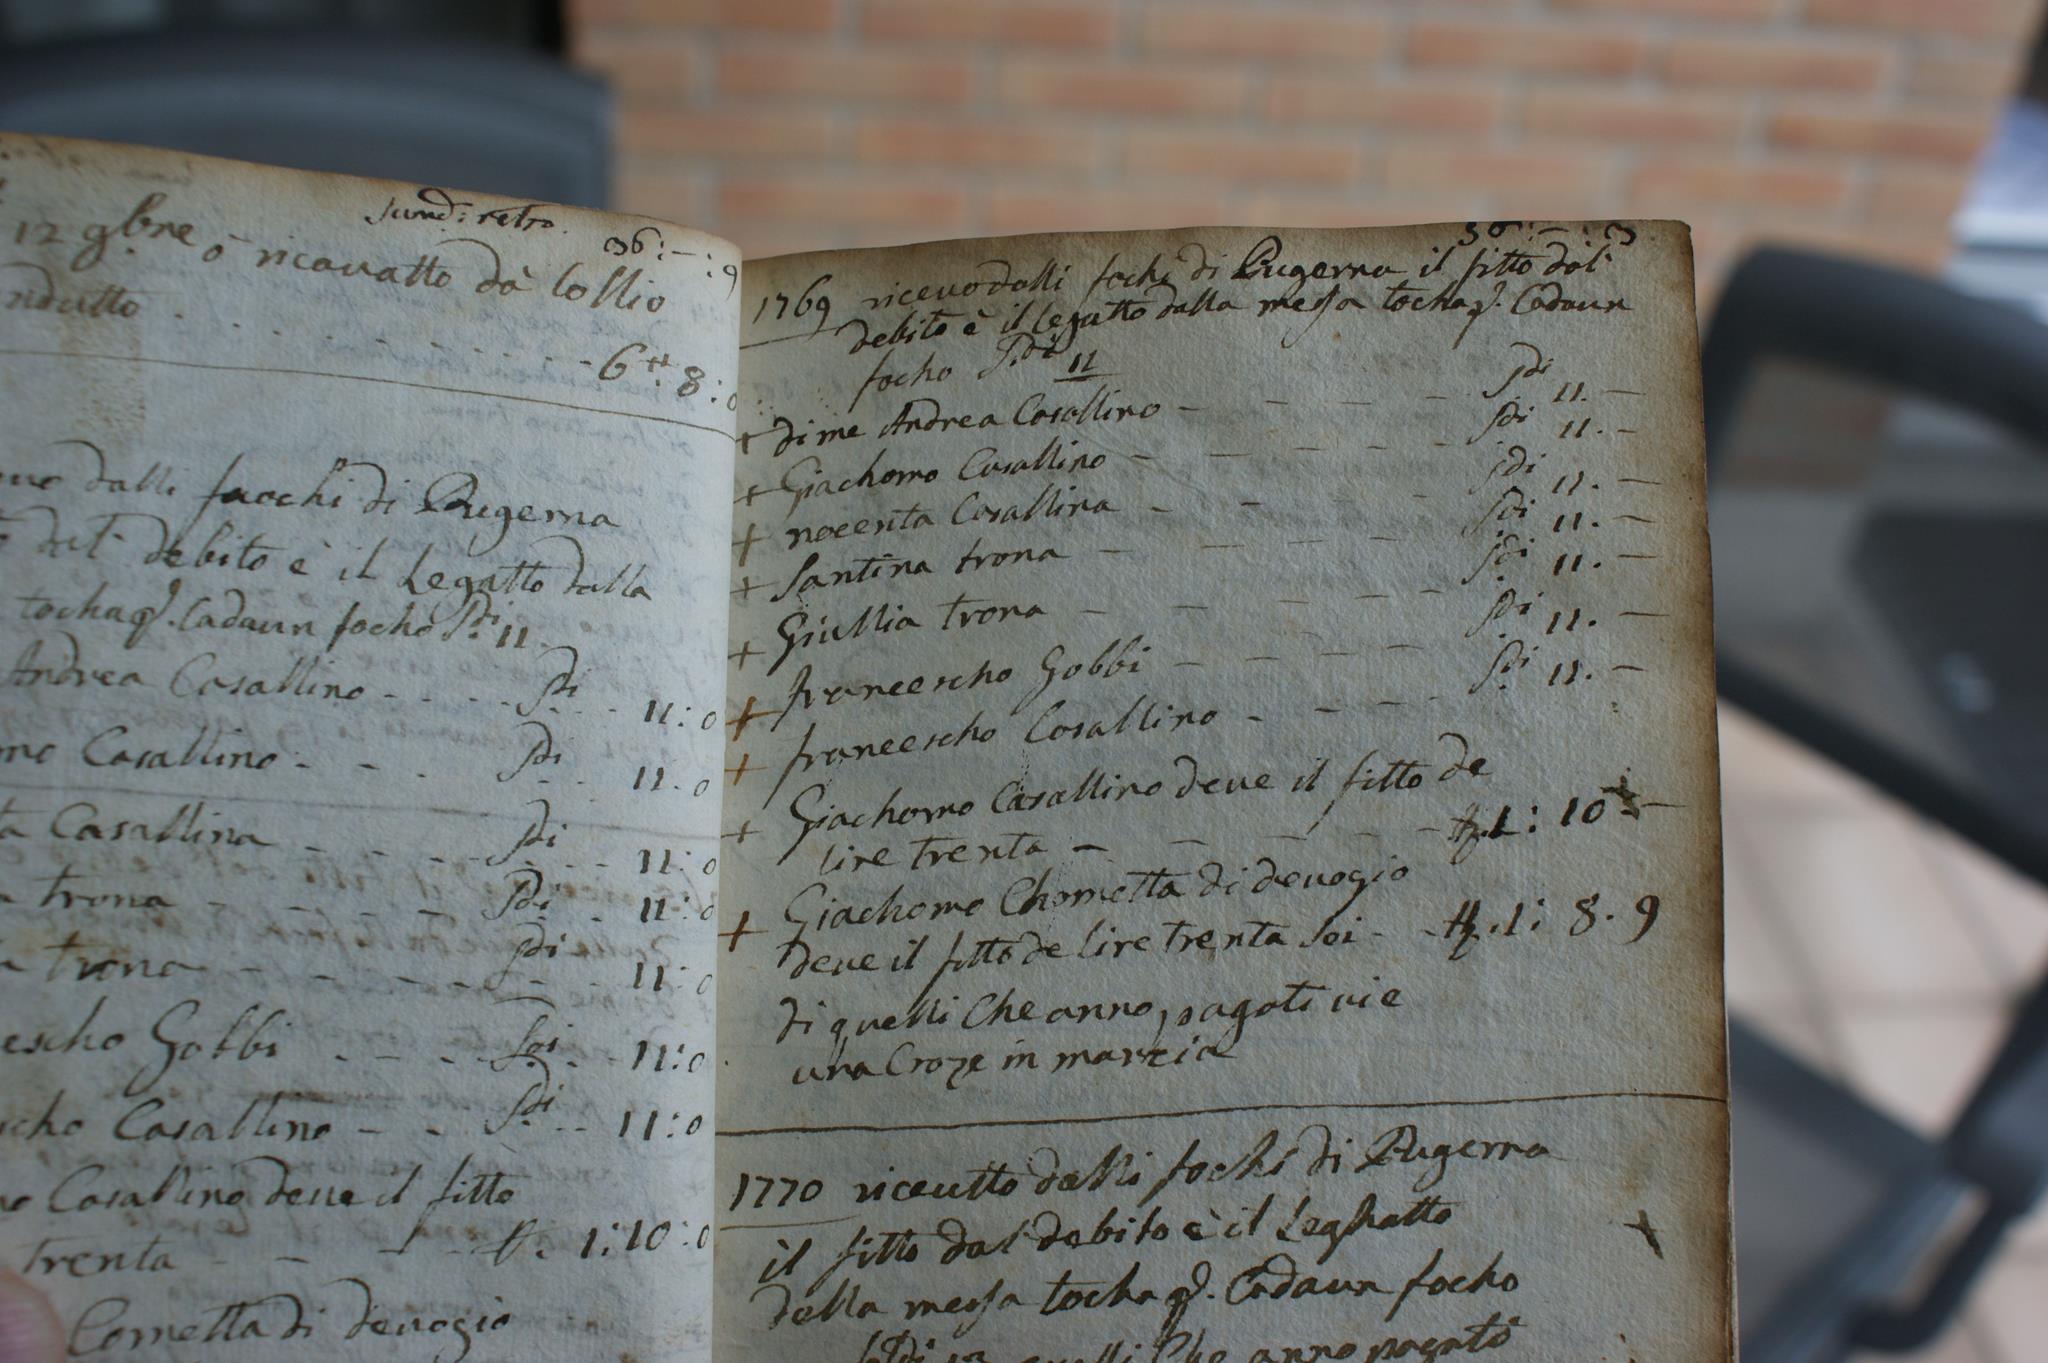 Sund: retro. 36:-:9
12 9bre ò ricavatto dà lollio
ndutto - - - - - 6 8:0
dalli fuochi di Rugerna
dal debito è il Legatto dalla
tocha p. Cadaun focho Sdi 11
Andrea Casallino - - - - Sdi 11:0
mo Casallino - - - Sdi 11.0
ta Casallina - - - - Sdi 11:0
a trona - - - - Sdi 11:0
a trona - - - - Sdi 11:0
escho Gobbi - - - Sdi 11:0
scho Casallino - - Sdi 11:0
mo Casallino deve il fitto
trenta - - - - 1:10:0
Cometta di devogio
36:-:
1769 ricevo dalli fochi di Rugerna il fitto dal
debito è il legatto dalla messa tocha p. Cadaun
focho Sdi 11
+ di me Andrea Casallino - - - - Sdi 11.-
+ Giachomo Casallino - - - - Sdi 11.-
+ nocenta Casallina - - - - Sdi 11.-
+ Santina trona - - - - Sdi 11.-
+ Giullia trona - - - - Sdi 11.-
+ francescho Gobbi - - - - Sdi 11.-
+ francescho Casallino - - - - Sdi 11.-
+ Giachomo Casallino deve il fitto de
lire trenta - - - - 1:10 -
+ Giachomo Chometta di devogio
deve il fitto de lire trenta Soi - - 1:8.9
di quelli Che anno pagati vie
una Croze in marzia
1770 riceutto dalli fochi di Rugerna
il fitto dal debito è il Leghatto
della messa tocha p. Cadaun focho
quelli Che anno pagati